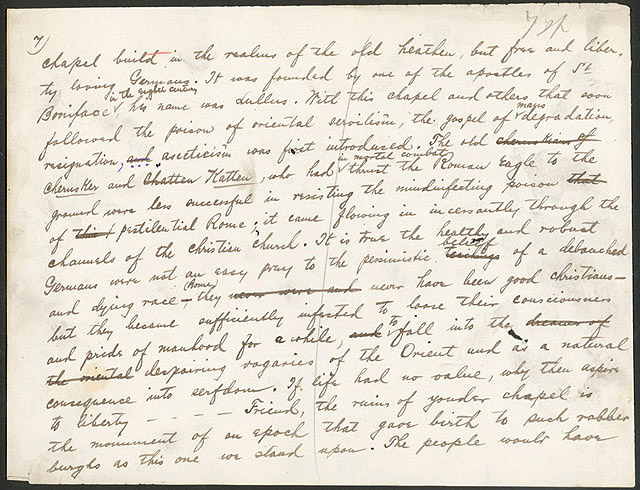 7)
chapel build in the realms of the old heathen, but free and liber-
ty loving Germans. It was founded by one of the apostles of St
in the eighth century
Boniface his name was Lullus. With this chapel and others that soon
man's
followed the poison of oriental servilism, the gospel of degradation,
resignation, and asecticism was first introduced. The old cheruskians of
in mortal combat
cherusker and Chatten Katten, who had thrust the Roman Eagle to the
ground were less succesful in resisting the mindinfecting poison that
of this pestilential Rome; it came flowing in incessantly through the
channels of the christian church. It is true the healthy and robust
belief of
Germans were not an easy prey to the pessimistic teachings of a debauched
(Rome)
and dying race – they never were and never have been good christians –
but they became sufficiently infected to loose their consciousness
to
and pride of manhood for a while, and fall into the dreams of
the oriental despairing vagaries of the Orient and as a natural
consequence into serfdom. If life had no value, why then aspire
to liberty – – – – Friend, the ruins of yonder chapel is
the monument of an epoch that gave birth to such robber
burghs as this one we stand upon. The people would have